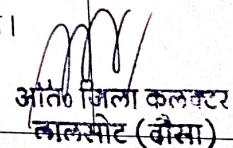 ।
अति० जिला कलक्टर
लालसोट (दौसा)